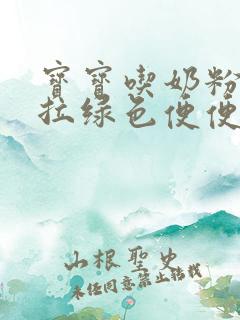 寶寶喫奶粉
拉綠色便便
山根聖史
未經同意禁止轉載